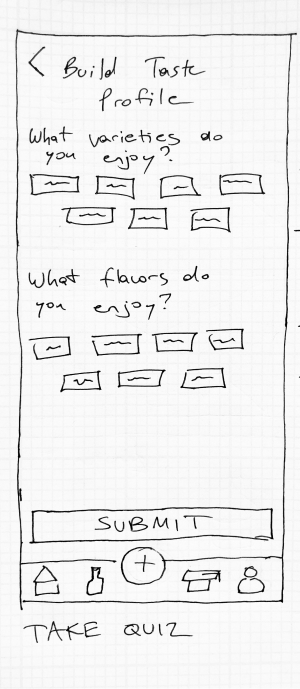 < Build Taste
Profile
What varieties do
you enjoy?
What flavors do
you enjoy?
SUBMIT
+
TAKE QUIZ